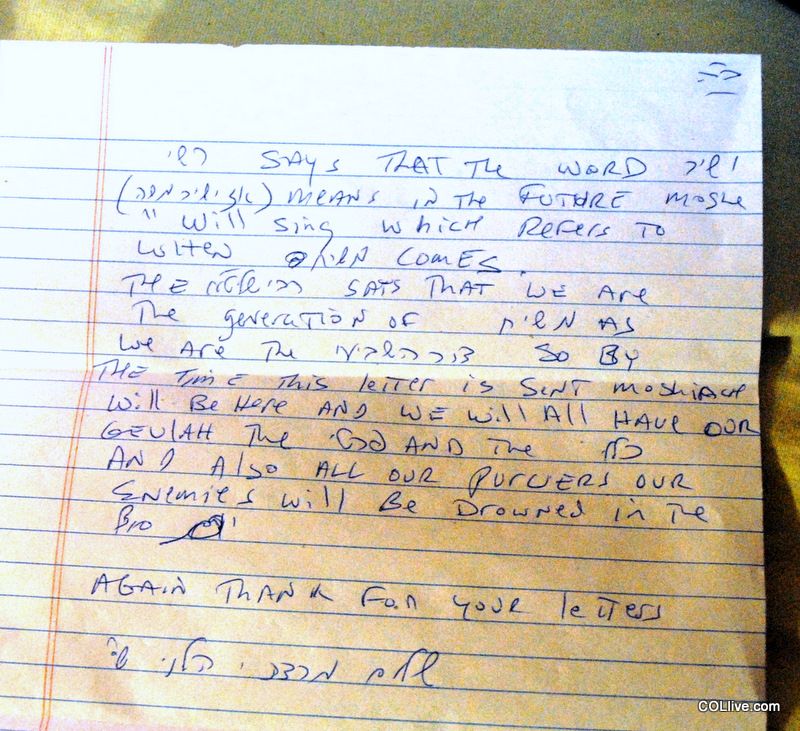 ב"ה
רש"י SAYS THAT THE WORD ישיר
(אז ישיר משה) MEANS IN THE FUTURE MOSHE
Will sing which REFERS TO
WHEN משיח COMES.
THE SAYS THAT WE ARE
The generation OF משיח AS
WE ARE THE דור השביעי SO BY
THE TIME THIS letter is SENT MOSHIACH
Will Be Here AND WE Will All HAVE OUR
GEULAH The פרטי AND The
AND Also ALL OUR OUR
Enemies will Be Drowned in The
AGAIN THANK FOR YOUR letters
שלום מרדכי הלוי שי'
COLlive.com